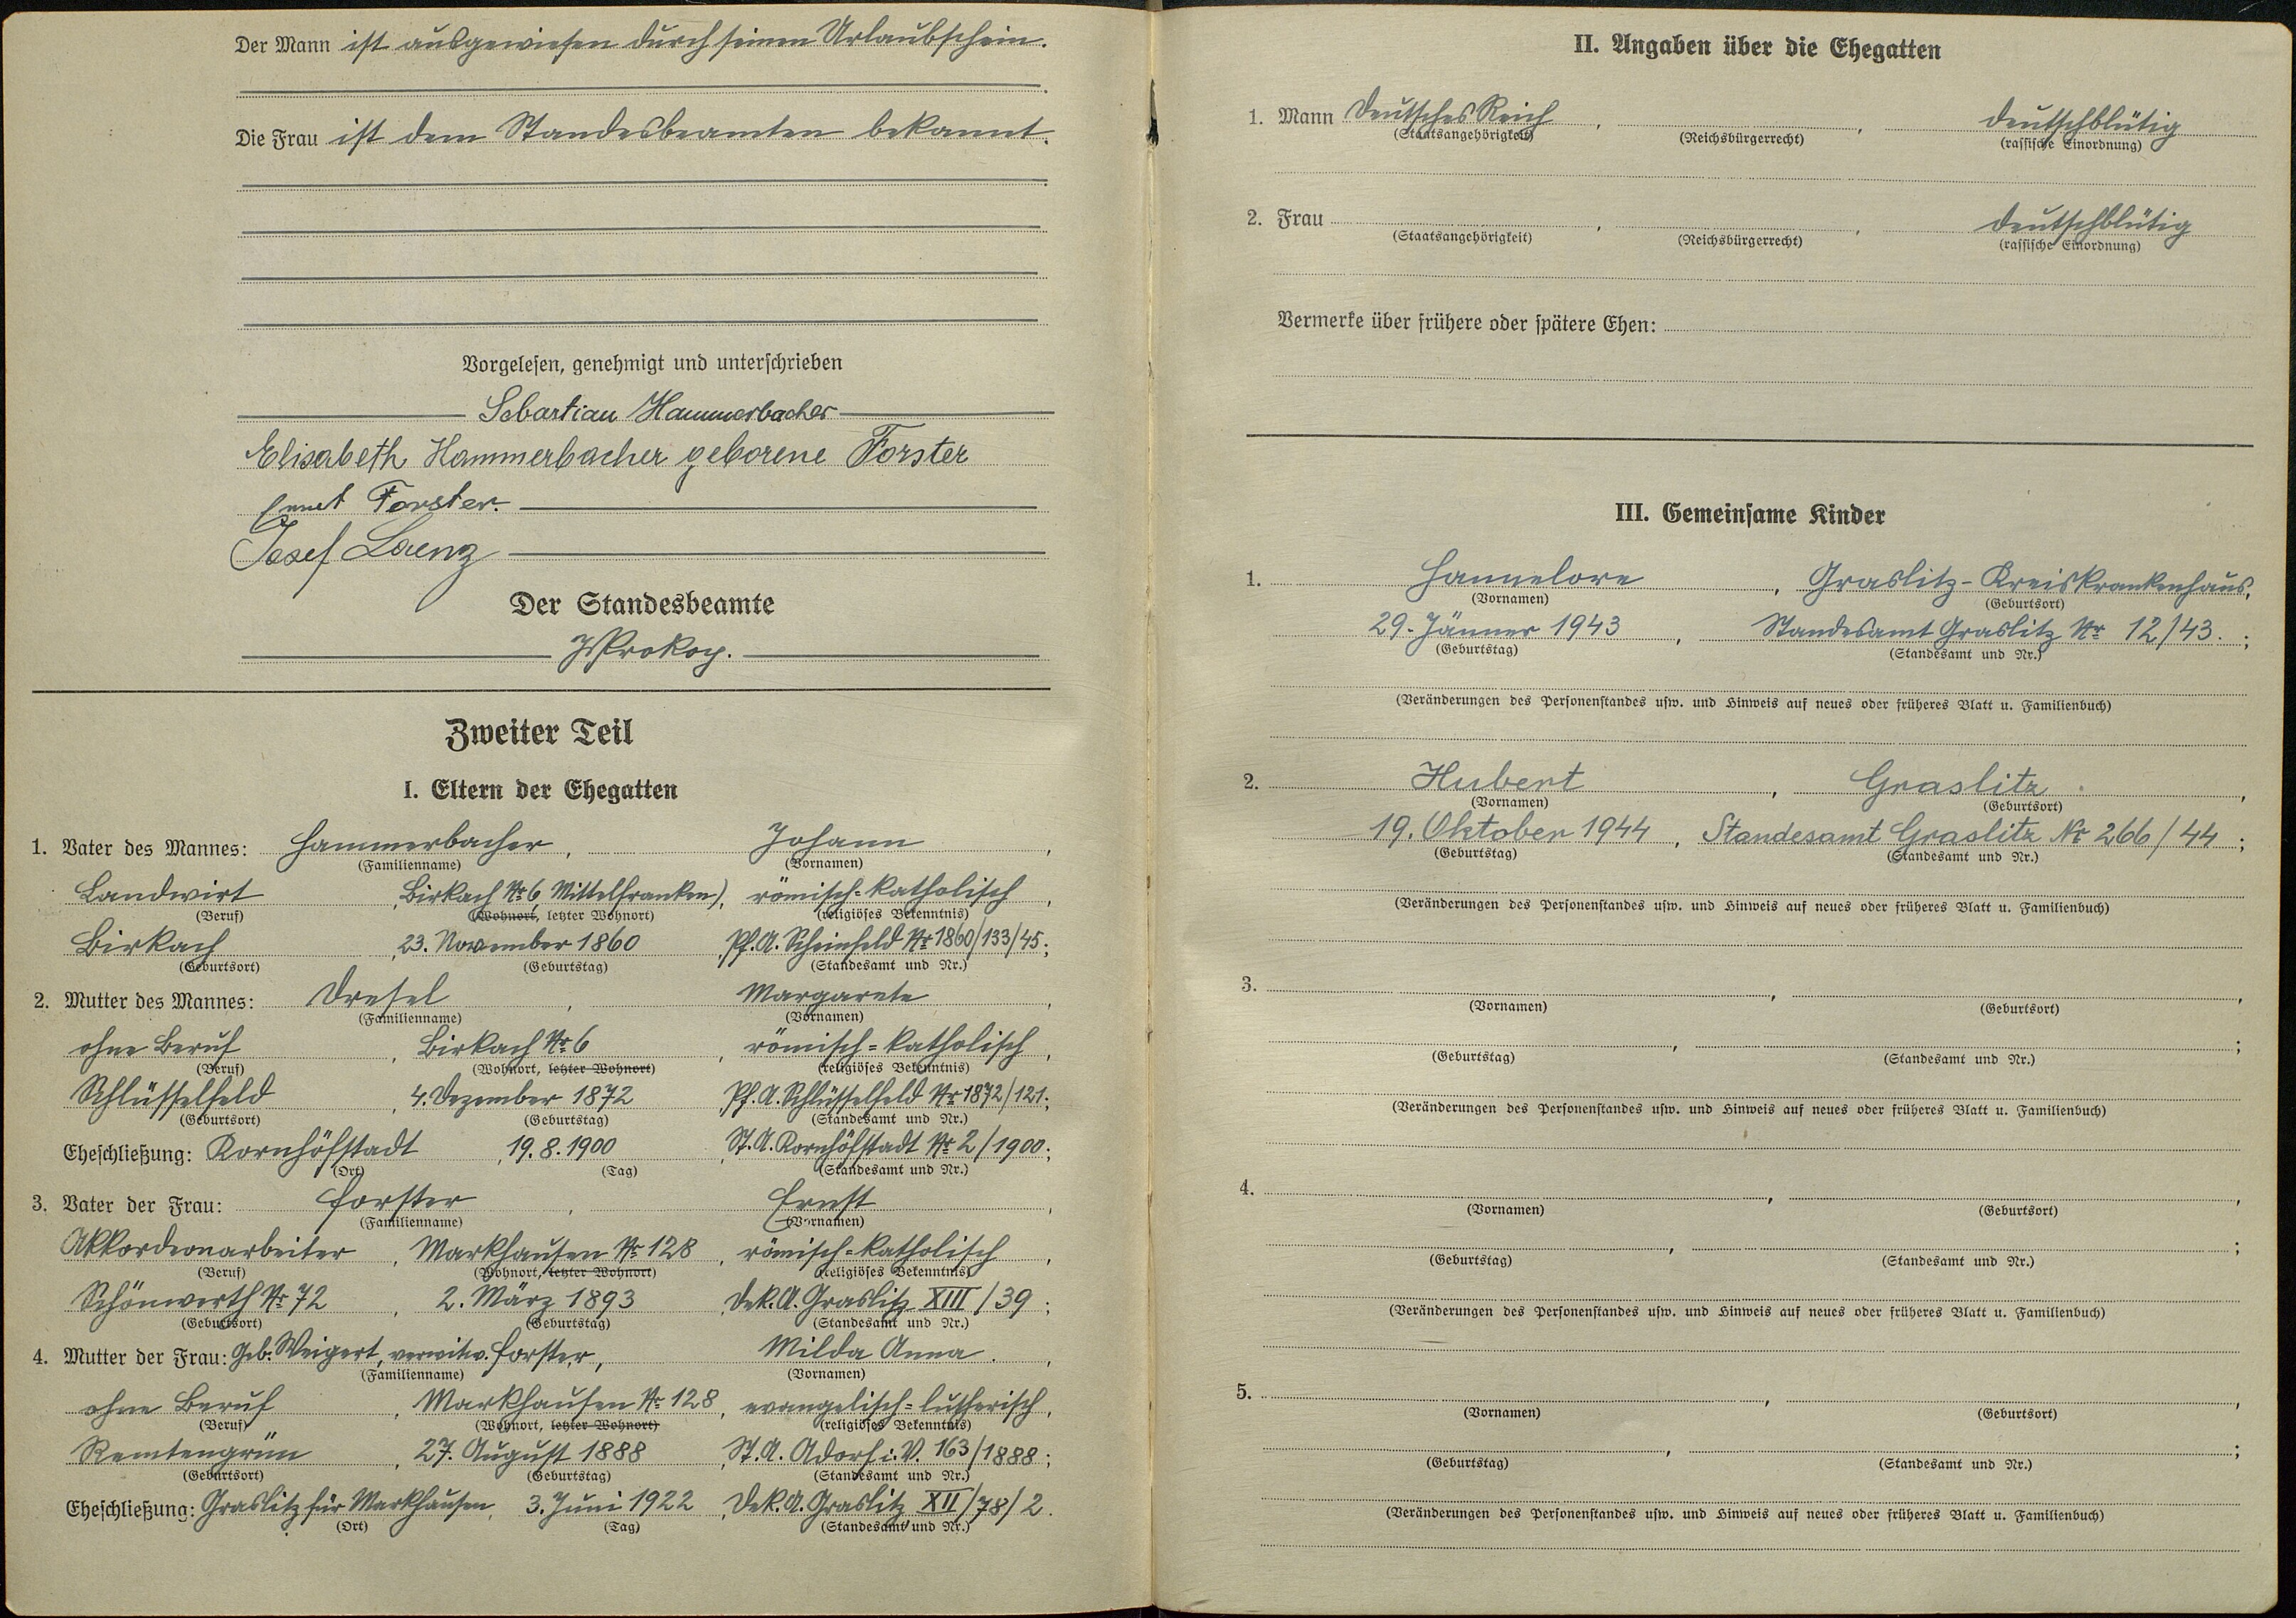 Der Mann ist ausgewiesen durch seinen Urlaubschein.
Die Frau ist dem Standesbeamten bekannt.
Vorgelesen, genehmigt und unterschrieben
Sebastian Hammerbacher
Elisabeth Hammerbacher geborene Forster
Forster.
Josef Lorenz
Der Standesbeamte
JProkop.
Zweiter Teil
I. Eltern der Ehegatten
1. Vater des Mannes: Hammerbacher, Johann,
(Familienname) (Vornamen)
Landwirt, Birkach Nr. 6, Mittelfranken), römisch=katholisch,
(Beruf) (Wohnort, letzter Wohnort) (religiöses Bekenntnis)
Birkach, 23. November 1860, Pf. A. Scheinfeld Nr. 1860/133/45;
(Geburtsort) (Geburtstag) (Standesamt und Nr.)
2. Mutter des Mannes: Dresel, Margarete,
(Familienname) (Vornamen)
ohne Beruf, Birkach Nr. 6, römisch=katholisch,
(Beruf) (Wohnort, letzter Wohnort) (religiöses Bekenntnis)
Schlüsselfeld, 4. Dezember 1872, Pf. A. Schlüsselfeld Nr. 1872/121;
(Geburtsort) (Geburtstag) (Standesamt und Nr.)
Eheschließung: Kornhöfstadt, 19. 8. 1900, St. A. Kornhöfstadt Nr. 2/1900;
(Ort) (Tag) (Standesamt und Nr.)
3. Vater der Frau: Forster, Ernst,
(Familienname) (Vornamen)
Akkordeonarbeiter, Markhausen Nr. 128, römisch=katholisch,
(Beruf) (Wohnort, letzter Wohnort) (religiöses Bekenntnis)
Schönwerth Nr. 72, 2. März 1893, Dek. A. Graslitz XIII/39;
(Geburtsort) (Geburtstag) (Standesamt und Nr.)
4. Mutter der Frau: Geb. Weigert, verwitw. Forster, Milda Anna.,
(Familienname) (Vornamen)
ohne Beruf, Markhausen Nr. 128, evangelisch=lutherisch,
(Beruf) (Wohnort, letzter Wohnort) (religiöses Bekenntnis)
Remtengrün, 27. August 1888, St. A. Adorf i. V. 163/1888;
(Geburtsort) (Geburtstag) (Standesamt und Nr.)
Eheschließung: Graslitz für Markhausen, 3. Juni 1922, Dek. A. Graslitz XII/78/2.
(Ort) (Tag) (Standesamt und Nr.)
II. Angaben über die Ehegatten
1. Mann Deutsches Reich, , deutschblütig
(Staatsangehörigkeit) (Reichsbürgerrecht) (rassische Einordnung)
2. Frau , , deutschblütig
(Staatsangehörigkeit) (Reichsbürgerrecht) (rassische Einordnung)
Vermerke über frühere oder spätere Ehen:
III. Gemeinsame Kinder
1. Hannelore, Graslitz-Kreiskrankenhaus,
(Vornamen) (Geburtsort)
29. Jänner 1943, Standesamt Graslitz Nr. 12/43.;
(Geburtstag) (Standesamt und Nr.)
(Veränderungen des Personenstandes usw. und Hinweis auf neues oder früheres Blatt u. Familienbuch)
2. Hubert, Graslitz,
(Vornamen) (Geburtsort)
19. Oktober 1944, Standesamt Graslitz Nr. 266/44;
(Geburtstag) (Standesamt und Nr.)
(Veränderungen des Personenstandes usw. und Hinweis auf neues oder früheres Blatt u. Familienbuch)
3. , ,
(Vornamen) (Geburtsort)
, ;
(Geburtstag) (Standesamt und Nr.)
(Veränderungen des Personenstandes usw. und Hinweis auf neues oder früheres Blatt u. Familienbuch)
4. , ,
(Vornamen) (Geburtsort)
, ;
(Geburtstag) (Standesamt und Nr.)
(Veränderungen des Personenstandes usw. und Hinweis auf neues oder früheres Blatt u. Familienbuch)
5. , ,
(Vornamen) (Geburtsort)
, ;
(Geburtstag) (Standesamt und Nr.)
(Veränderungen des Personenstandes usw. und Hinweis auf neues oder früheres Blatt u. Familienbuch)